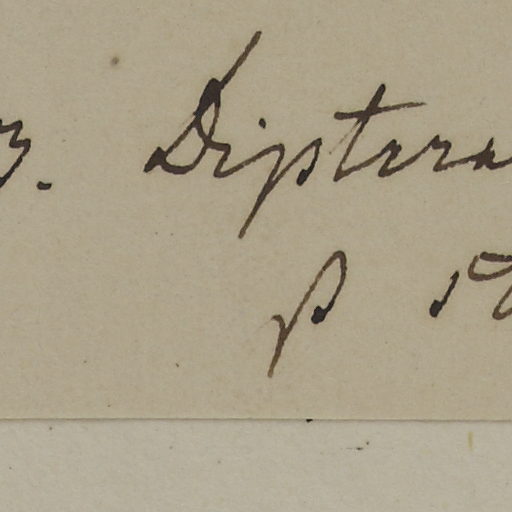 3. Diptera
p 5